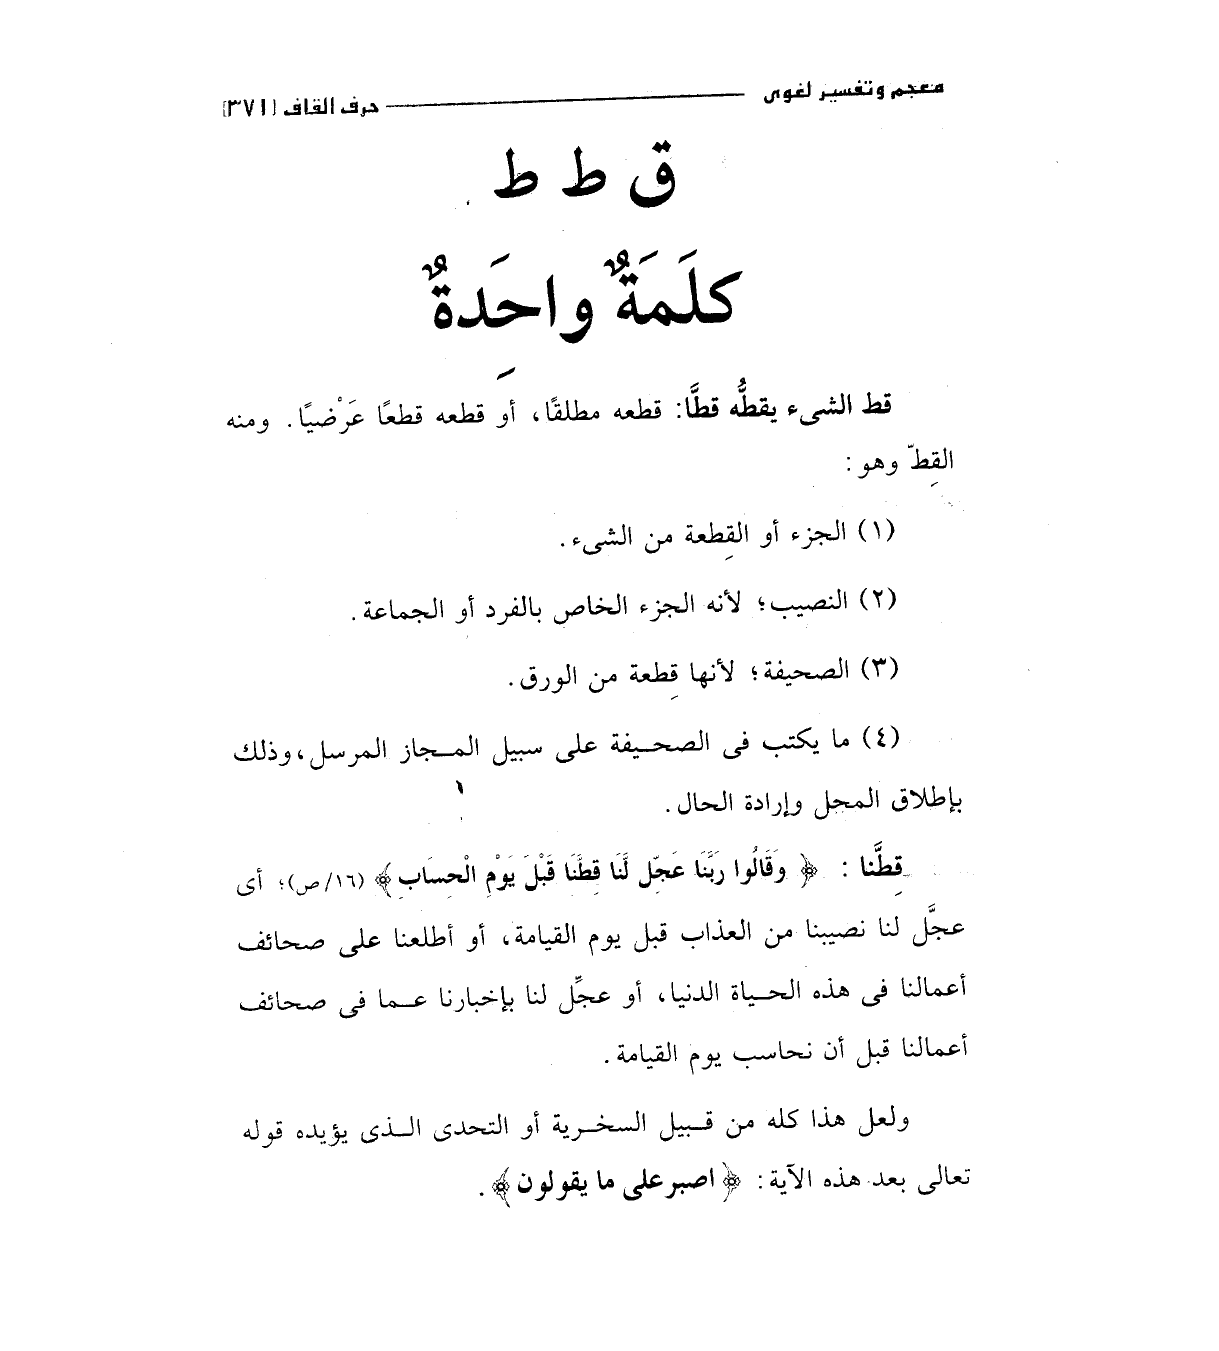 معجم وتفسير لغوى — حرف القاف (٣٧١)
ق ط ط
كلَمَةٌ واحِدَةٌ
قط الشىء يقطُّه قطًّا: قطعه مطلقًا، أو قطعه قطعًا عَرْضيًا. ومنه
القِطّ وهو :
(١) الجزء أو القِطعة من الشىء.
(٢) النصيب؛ لأنه الجزء الخاص بالفرد أو الجماعة.
(٣) الصحيفة؛ لأنها قِطعة من الورق.
(٤) ما يكتب فى الصحيفة على سبيل المجاز المرسل، وذلك
بإطلاق المحل وإرادة الحال.
قِطَّنا : ﴿ وَقَالُوا رَبَّنَا عَجِّل لَّنَا قِطَّنَا قَبْلَ يَوْمِ الْحِسَابِ ﴾ (١٦/ص)؛ أى
عجَّل لنا نصيبنا من العذاب قبل يوم القيامة، أو أطلعنا على صحائف
أعمالنا فى هذه الحياة الدنيا، أو عجِّل لنا بإخبارنا عما فى صحائف
أعمالنا قبل أن نحاسب يوم القيامة.
ولعل هذا كله من قبيل السخرية أو التحدى الذى يؤيده قوله
تعالى بعد هذه الآية: ﴿ اصبر على ما يقولون ﴾.